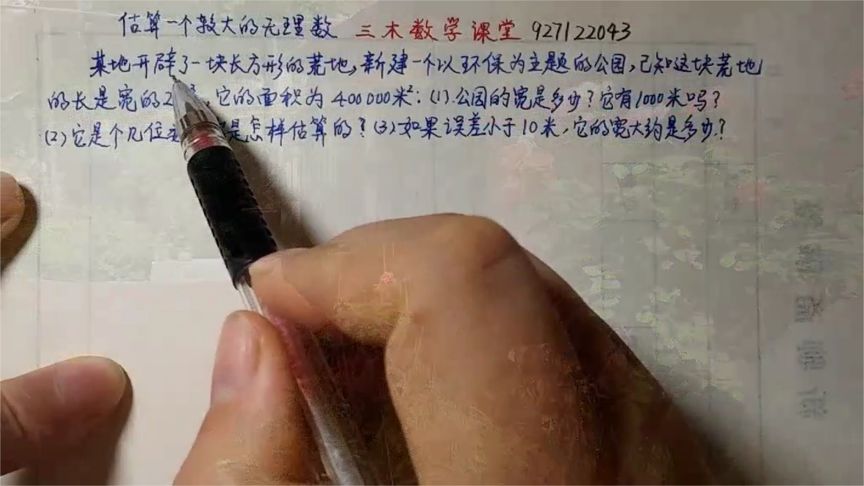 估算一个较大的无理数 三木数学课堂 927122043
某地开辟了一块长方形的荒地,新建一个以环保为主题的公园,已知这块荒地
的长是宽的2,它的面积为400000米²:(1)公园的宽是多少?它有1000米吗?
(2)它是个几位 是怎样估算的?(3)如果误差小于10米,它的宽大约是多少?